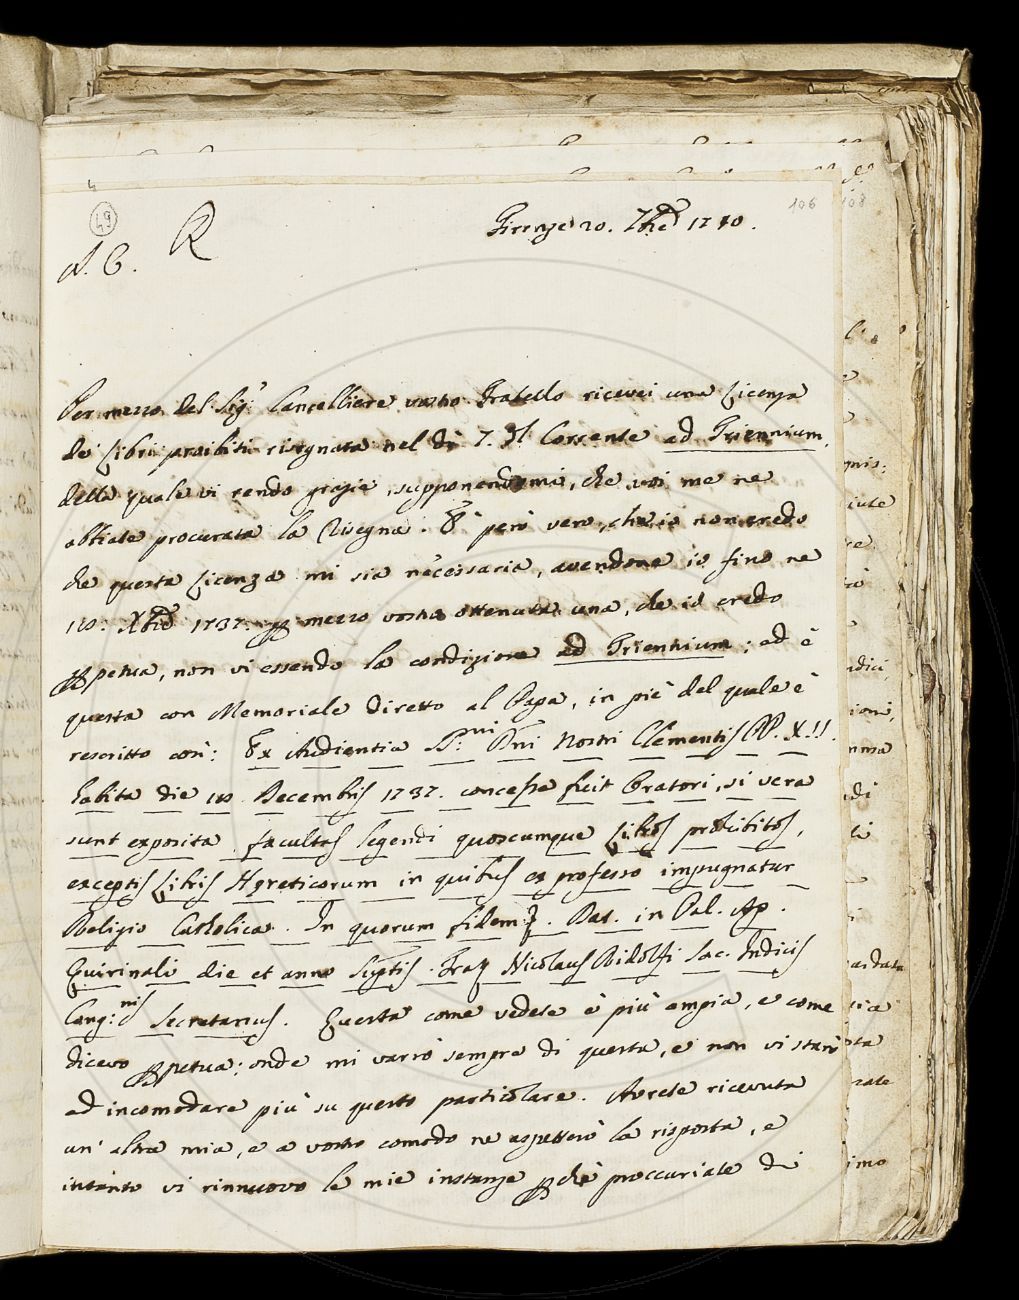 49
106
108
A. C. R
Firenze 20. 7bre 1740.
Per mezzo del Sig.r Cancelliere vostro Fratello ricevei una Licenza
de Libri proibiti risegnata nel dì 7. del Corrente ad Triennium,
della quale vi rendo grazie, supponendomi, che voi me ne
abbiate procurata la Risegna. È però vero, che io non credo
che questa Licenza mi sia necessaria, avendone io fino ne
10: Xbre 1737. p mezzo vostro ottenuta una, che io credo
ppetua, non vi essendo la condizione ad Triennium; ed è
questa con Memoriale diretto al Papa, in piè del quale è
rescritto così: Ex Audientia SS.mi Dni Nostri Clementis PP. XII.
habita die 10 Decembris 1737. concesse ficit Oratori, si vera
sunt exposita facultas legendi quoscumque Libros prohibitos,
exceptis Libris Hereticorum in quibus ex professo impugnatur
Religio Catholica. In quorum fidem. Dat. in Pal. Ap.
Quirinali die et anno Suptis. Fray Nicolaus Ridolfi Sac. Indicis
Cong:nis Secretarius. Questa come vedete è più ampia, e come
dicevo ppetua; onde mi varrò sempre di questa, e non vi starò
ad incomodare più su questo particolare. Avrete ricevuta
un' altra mia, e a vostro comodo ne aspetterò la risposta, e
intanto vi rinnuovo le mie instanze pchè proccuriate di